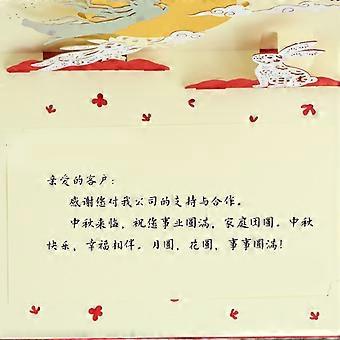 亲爱的客户：
感谢您对我公司的支持与合作。
中秋来临，祝您事业圆满，家庭团圆。中秋
快乐，幸福相伴。月圆，花圆，事事圆满！